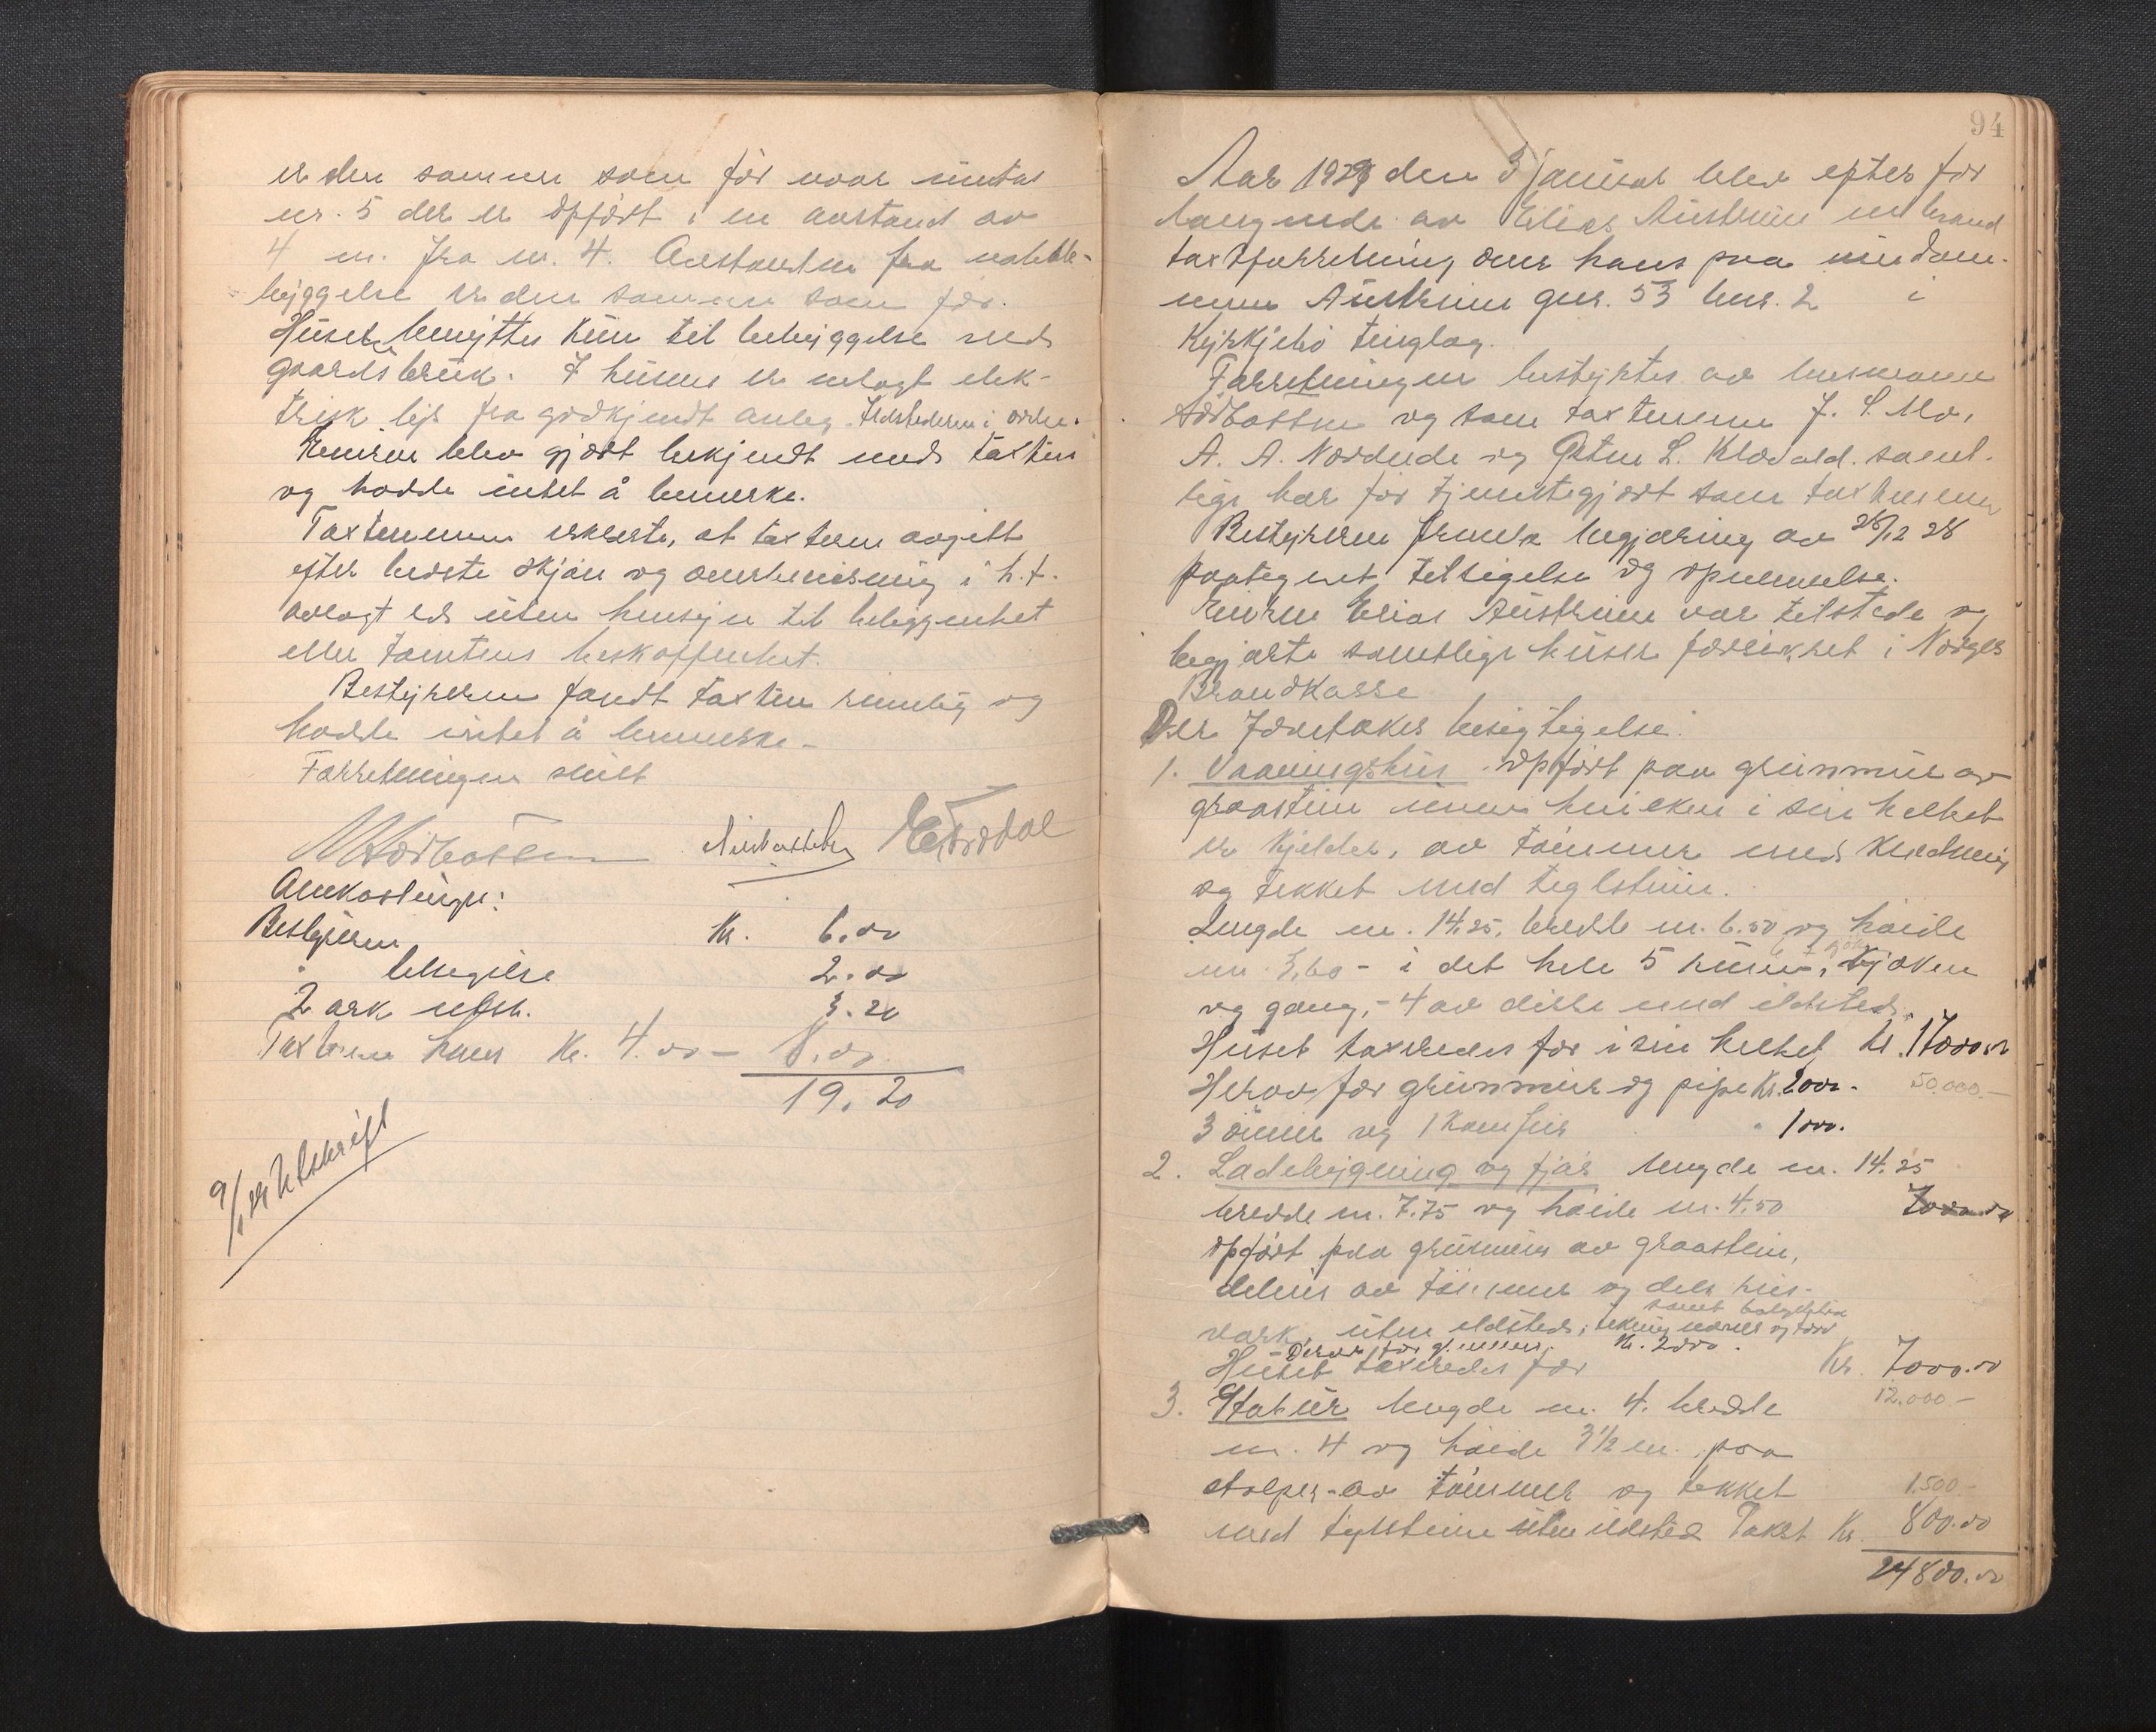 er den samme som før naar untas
nr. 5 der er opført i en avstand av
4 m. fra nr. 4. Avstanden fra nabobe-
byggelse er den samme som før.
Huset benyttes kun til bebyggelse med
gaardsbruk. I husene er inlagt elek-
trisk lys fra godkjendt anleg. Ildstederne i orden.
Eieren blev gjort bekjendt med taxten
og hadde intet å bemerke.
Taxtmennene erklærte, at taxten avgitt
efter bedste skjøn og overbevisning i h.t.
avlagt ed uten hensyn til beliggenhet
eller tomtens beskaffenhet.
Bestyreren fandt taxten rimelig og
hadde intet å bemerke.
Forretningen slutt
Omkostninger:
Bestyreren Kr. 6.00
" befægtelse 2.00
2 ark utsk. 3.20
Taxtmennene hver Kr. 4.00 — 8.00
19.20
9/1 29 Utskrift
94
Aar 1929 den 3 januar blev efter for
langende av Elias Austreim en brand
taxtforretning over hans paa eiendom-
men Austreim gnr. 53 bnr. 2 i
Kyrkjebø tinglag.
Forretningen bestyrtes av lensmann
Nordbotten og som taxtmenn J. S. Mo,
A. A. Nordeide og Peter L. Klævold. samt-
lige har før tjenstegjort som taxtmenn
Bestyreren fremla begjæring av 28/12 28
paategnet tilsigelse og opnevnelse.
Eieren Elias Austreim var tilstede og
begjærte samtlige huser forsikret i Norges
Brandkasse
Der foretokes besigtigelse:
1. Vaaningshus opført paa grunmur av
graastein under hvilken i sin helhet
er kjelder, av tømmer med kledning
og tekket med teglstein.
Lengde m. 14.25, bredde m. 6.50 og høide
m. 3,60 - i det hele 5 rum, kjøken
og gang, - 4 av disse med ildsted.
Huset taxeredes for i sin helhet kr. 17000.00
Herav for grunmur og pipe Kr. 2000.- 50.000.—
3 ovner og 1 komfur " 1000.
2. Ladebygning og fjøs lengde m. 14.25
bredde m. 7.75 og høide m. 4.50 7000.00
opført paa grunmur av graastein,
delvis av tømmer og dels bin-
verk, uten ildsted, tekning never og torv
Derav for gr.muren Kr. 2000.
Huset taxeredes for Kr. 7000.00
12.000 —
3. Stabur lengde m. 4. bredde
m. 4 og høide 3½ m. paa
stolper av tømmer og tekket 1.500 —
med teglsteine uten ildsted Takst Kr. 800.00
24800.00